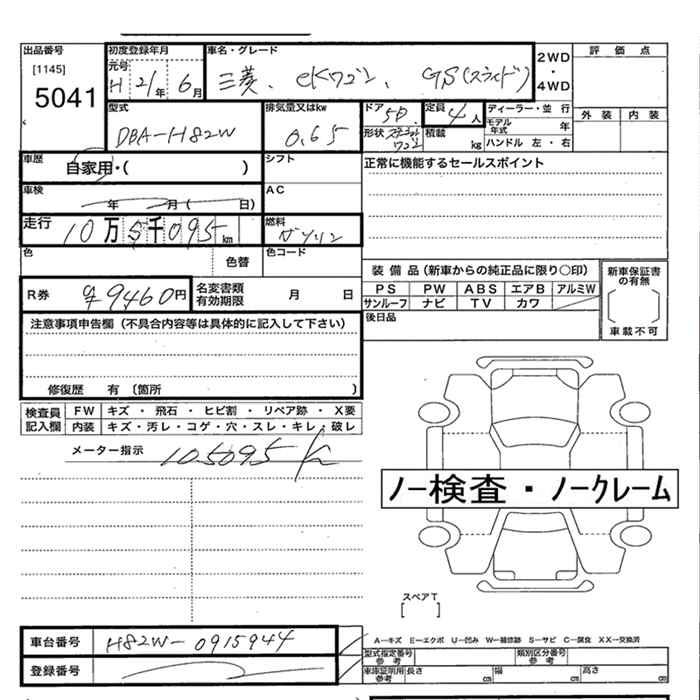 出品番号 初度登録年月 車名・グレード 2WD・4WD 評価点
[1145] 元号
5041 H 21年 6月 三菱、eKワゴン、GS(スライド)
型式 排気量又はkw ドア 5D 定員 4人 ディーラー・並行 外装 内装
モデル年式 年
DBA-H82W 0.65 形状 積載 kg ハンドル 左・右
車歴 自家用・( ) シフト 正常に機能するセールスポイント
車検 年 月( 日) AC
走行 10万5千095km 燃料 ガソリン
色 色替 色コード
装備品(新車からの純正品に限り○印) 新車保証書の有無
R券 ¥9460円 名変書類有効期限 月 日 PS PW ABS エアB アルミW
サンルーフ ナビ TV カワ
注意事項申告欄(不具合内容等は具体的に記入して下さい) 後日品 車載不可
修復歴 有(箇所 )
検査員記入欄 FW キズ・飛石・ヒビ割・リペア跡・X要
内装 キズ・汚レ・コゲ・穴・スレ・キレ・破レ
メーター指示 105095km
ノー検査・ノークレーム
スペアT
[ ]
車台番号 H82W-0915944 A−キズ E−エクボ U−凹み W−補修跡 S−サビ C−腐食 XX−交換済
型式指定番号 参考 類別区分番号 参考
登録番号 車庫証明用 参考 長さ cm 幅 cm 高さ cm